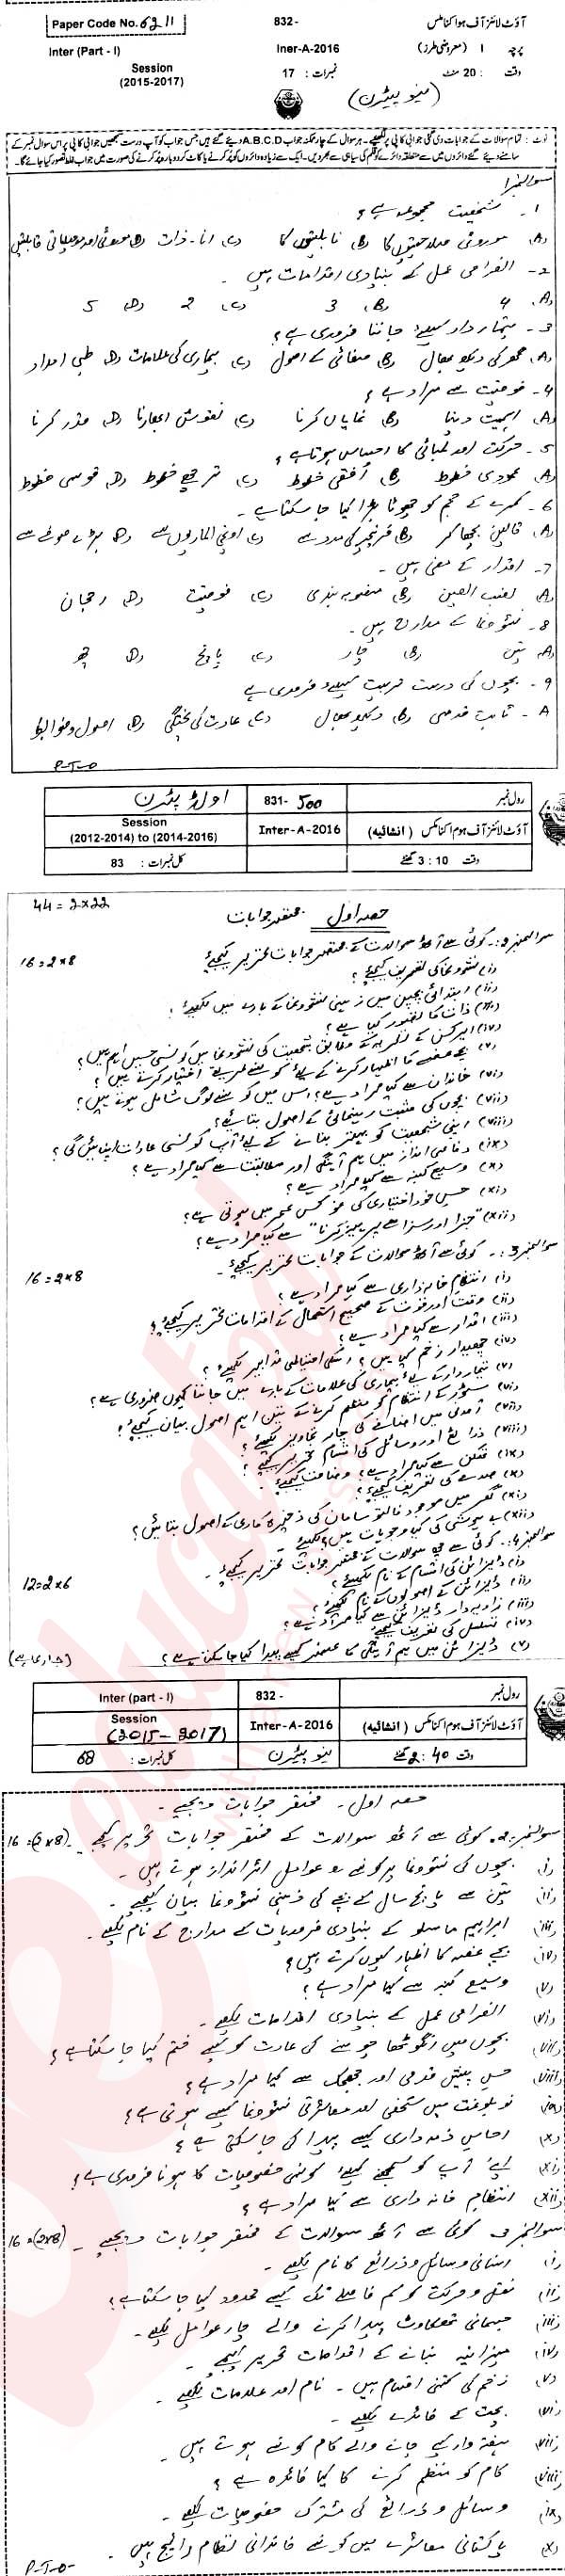 Paper Code No. 6211
832-
آؤٹ لائنز آف ہوم اکنامکس
Inter (Part - I)
Iner-A-2016
پرچہ I (معروضی طرز)
Session
(2015-2017)
نمبرات : 17
وقت : 20 منٹ
(نیو پیٹرن)
نوٹ : تمام سوالات کے جوابات دی گئی جوابی کاپی پر لکھیے۔ ہر سوال کے چار ممکنہ جواب A,B,C,D دیئے گئے ہیں جس جواب کو آپ درست سمجھیں جوابی کاپی پر اس سوال نمبر کے
سامنے دیئے گئے دائروں میں سے متعلقہ دائرے کو قلم کی سیاہی سے بھر دیں۔ ایک سے زیادہ دائروں کو پُر کرنے یا کاٹ کر دوبارہ پُر کرنے کی صورت میں جواب غلط تصور کیا جائے گا۔
سوال نمبر 1
1۔ شخصیت مجموعہ ہے؟
(A) موروثی صلاحیتوں کا (B) قابلیتوں کا (C) انا - ذات (D) موروثی اور ماحولیاتی قابلیتیں
2۔ انصرامی عمل کے بنیادی اقدامات ہیں۔
(A) 4 (B) 3 (C) 2 (D) 5
3۔ تیمار دار کیلئے جاننا ضروری ہے؟
(A) گھر کی دیکھ بھال (B) صفائی کے اصول (C) بیماری کی علامات (D) طبی امداد
4۔ فوقیت سے مراد ہے؟
(A) اہمیت دینا (B) نمایاں کرنا (C) نقوش ابھارنا (D) مقرر کرنا
5۔ حرکت اور لمبائی کا احساس ہوتا ہے؟
(A) عمودی خطوط (B) اُفقی خطوط (C) ترچھے خطوط (D) قوسی خطوط
6۔ کمرے کے حجم کو چھوٹا بڑا کیا جا سکتا ہے۔
(A) قالین بچھا کر (B) فرنیچر کی مدد سے (C) اونچی الماریوں سے (D) بڑے صوفے سے
7۔ اقدار کے معنی ہیں۔
(A) نصب العین (B) منصوبہ بندی (C) فوقیت (D) رجحان
8۔ نشوونما کے مدارج ہیں۔
(A) تین (B) چار (C) پانچ (D) چھ
9۔ بچوں کی درست تربیت کیلئے ضروری ہے
A۔ ثابت قدمی (B) دیکھ بھال (C) عادت کی پختگی (D) اصول و ضوابط
P-T-O
رول نمبر
831-500
اولڈ پیٹرن
آؤٹ لائنز آف ہوم اکنامکس (انشائیہ)
Inter-A-2016
Session
(2012-2014) to (2014-2016)
وقت 3:10 گھنٹے
کل نمبرات : 83
حصہ اول مختصر جوابات
44 = 2x22
سوال نمبر 2:۔ کوئی سے آٹھ سوالات کے مختصر جوابات تحریر کیجئے؟
16=2x8
(i) نشوونما کی تعریف کیجئے؟
(ii) ابتدائی بچپن میں ذہنی نشوونما کے بارے میں لکھیئے؟
(iii) ذات کا تصور کیا ہے؟
(iv) ایرکسن کے نظریہ کے مطابق شخصیت کی نشوونما میں کونسی حسیں اہم ہیں؟
(v) بچے غصے کا اظہار کرنے کے لیئے کونسے طریقے اختیار کرتے ہیں؟
(vi) خاندان سے کیا مراد ہے؟ اس میں کونسے لوگ شامل ہوتے ہیں؟
(vii) بچوں کی مثبت رہنمائی کے اصول بتائیے؟
(viii) اپنی شخصیت کو بہتر بنانے کے لیئے آپ کونسی عادات اپنائیں گی؟
(ix) دفاعی انداز میں ہم آہنگی اور مطابقت سے کیا مراد ہے؟
(x) وسیع کنبہ سے کیا مراد ہے؟
(xi) حس خود اختیاری کی نمو کس عمر میں ہوتی ہے؟
(xii) "جزا اور سزا سے پرہیز کرنا" سے کیا مراد ہے؟
سوال نمبر 3:۔ کوئی سے آٹھ سوالات کے جوابات تحریر کیجئے۔
16=2x8
(i) انتظام خانہ داری سے کیا مراد ہے؟
(ii) وقت اور قوت کے صحیح استعمال کے اقدامات تحریر کیجئے؟
(iii) اقدار سے کیا مراد ہے؟
(iv) چھیدار زخم کیا ہیں؟ انکی احتیاطی تدابیر لکھیئے؟
(v) تیماردار کے لیئے بیماری کی علامات کے بارے میں جاننا کیوں ضروری ہے؟
(vi) سٹور کے انتظام کو منظم کرنے کے تین اہم اصول بیان کیجیئے؟
(vii) آمدنی میں اضافے کی چار تجاویز لکھیئے؟
(viii) ذرائع اور وسائل کی اقسام تحریر کیجئے؟
(ix) تھکن سے کیا مراد ہے؟ وضاحت کیجیئے؟
(x) صدمے کی تعریف کیجئے؟
(xi) گھر میں موجود فالتو سامان کی ذخیرہ کاری کے اصول بتائیں؟
(xii) بے ہوشی کی کیا وجوہات ہیں؟ لکھیئے۔
سوال نمبر 4:۔ کوئی سے چھ سوالات کے مختصر جوابات تحریر کیجیئے۔
12=2x6
(i) ڈیزائن کی اقسام کے نام لکھیئے؟
(ii) ڈیزائن کے اصولوں کے نام لکھیئے؟
(iii) زاویہ دار ڈیزائن سے کیا مراد ہے؟
(iv) تسلسل کی تعریف کیجیئے؟
(v) ڈیزائن میں ہم آہنگی کا عنصر کیسے پیدا کیا جا سکتا ہے؟
(جاری ہے)
رول نمبر
832-
Inter (part - I)
آؤٹ لائنز آف ہوم اکنامکس (انشائیہ)
Inter-A-2016
Session
(2015-2017)
وقت 2:40 گھنٹے
نیو پیٹرن
کل نمبرات : 68
حصہ اول - مختصر جوابات دیجیے۔
سوال نمبر 2۔ کوئی سے آٹھ سوالات کے مختصر جوابات تحریر کیجیے۔ 16=(2x8)
(i) بچوں کی نشوونما پر کونسے دو عوامل اثر انداز ہوتے ہیں۔
(ii) تین سے پانچ سال کے بچے کی ذہنی نشوونما بیان کیجیے۔
(iii) ابراہیم ماسلو کے بنیادی ضروریات کے مدارج کے نام لکھیے۔
(iv) بچے غصہ کا اظہار کیوں کرتے ہیں؟
(v) وسیع کنبہ سے کیا مراد ہے؟
(vi) انصرامی عمل کے بنیادی اقدامات لکھیے۔
(vii) بچوں میں انگوٹھا چوسنے کی عادت کو کیسے ختم کیا جا سکتا ہے؟
(viii) حس پیش قدمی اور جھجک سے کیا مراد ہے؟
(ix) نوبلوغت میں شخصی اور معاشرتی نشوونما کیسے ہوتی ہے؟
(x) احساس ذمہ داری کیسے پیدا کی جا سکتی ہے؟
(xi) اپنے آپ کو سمجھنے کیلئے کونسی خصوصیات کا ہونا ضروری ہے؟
(xii) انتظام خانہ داری سے کیا مراد ہے؟
سوال نمبر 3۔ کوئی سے آٹھ سوالات کے مختصر جوابات دیجیے۔ 16=(2x8)
(i) انسانی وسائل و ذرائع کا نام لکھیے۔
(ii) نقل و حرکت کو کم فاصلے تک کیسے محدود کیا جا سکتا ہے؟
(iii) جسمانی تھکاوٹ پیدا کرنے والے چار عوامل لکھیے۔
(iv) میزانیہ بنانے کے اقدامات تحریر کیجیے۔
(v) زخم کی کتنی اقسام ہیں۔ نام اور علامات لکھیے۔
(vi) بچت کے فائدے لکھیے۔
(vii) ہفتہ وار کیے جانے والے کام کونسے ہوتے ہیں۔
(viii) کام کو منظم کرنے کا کیا فائدہ ہے؟
(ix) وسائل و ذرائع کی مشترک خصوصیات لکھیے۔
(x) پاکستانی معاشرے میں کونسے خاندانی نظام رائج ہیں۔
P-T-O-